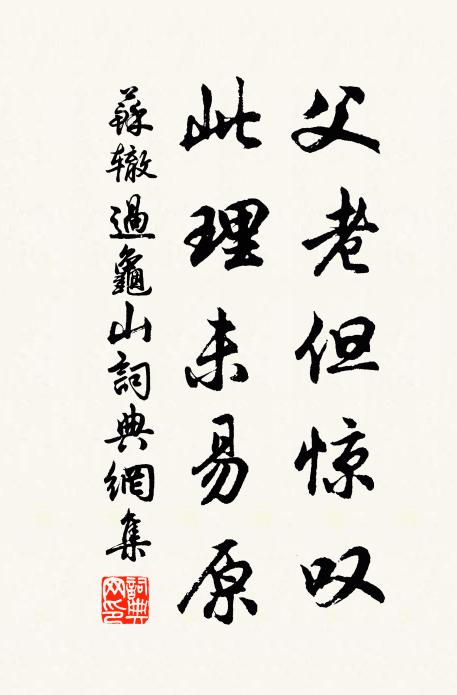 父老但惊叹
此理未易原
蘇辙過龜山詞典網集
詞典网印